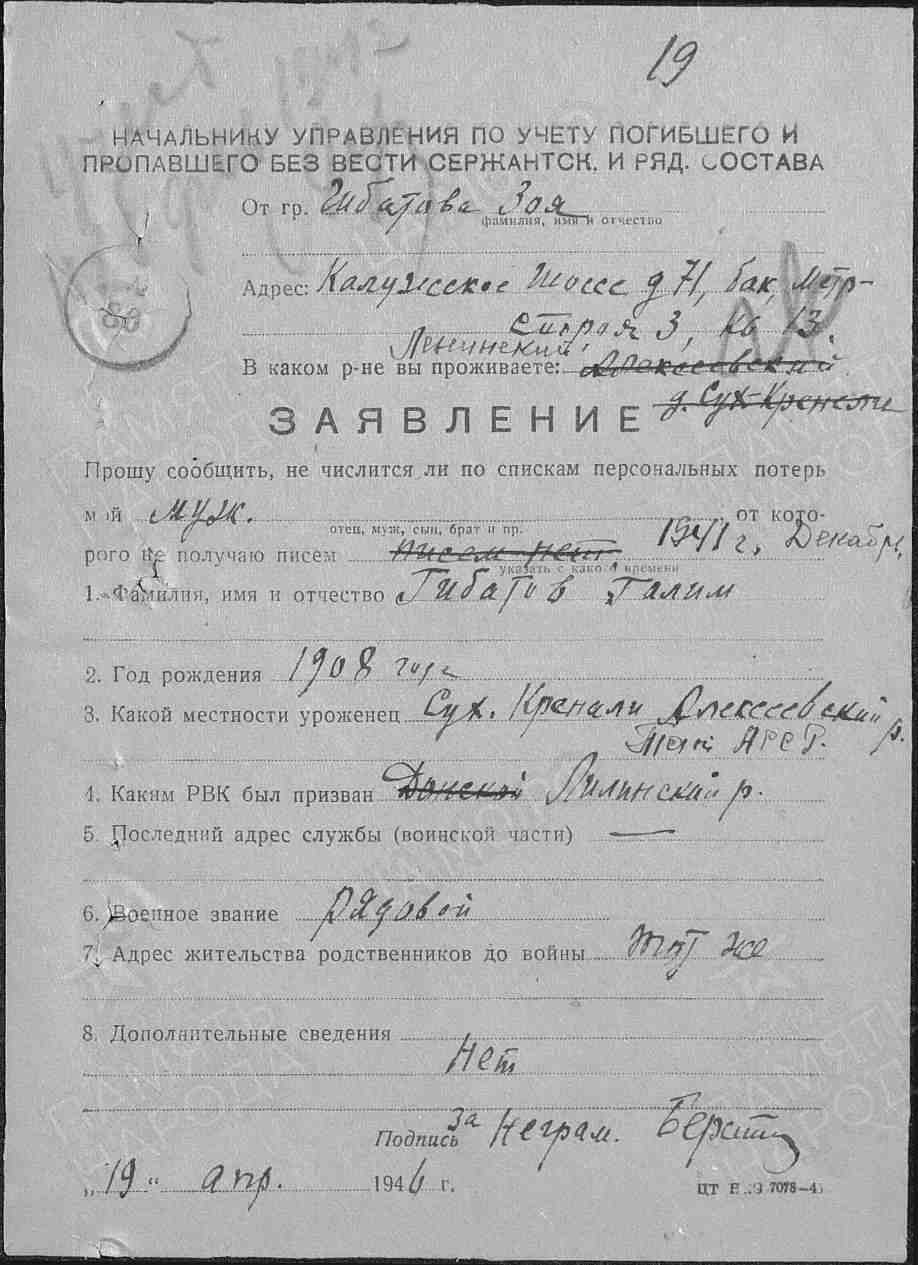 19
НАЧАЛЬНИКУ УПРАВЛЕНИЯ ПО УЧЕТУ ПОГИБШЕГО И
ПРОПАВШЕГО БЕЗ ВЕСТИ СЕРЖАНТСК. И РЯД. СОСТАВА
От гр. Гибатова Зоя
фамилия, имя и отчество
Адрес: Калужское Шоссе д 71, бак, Метр-
строя 3, кв 13.
Ленинский
В каком р-не вы проживаете: Алексеевский
д. Сух-Кренели
ЗАЯВЛЕНИЕ
Прошу сообщить, не числится ли по спискам персональных потерь
мой муж. от кото-
отец, муж, сын, брат и пр.
рого не получаю писем писем нет 1941 г, Декабрь,
указать с какого времени
1. Фамилия, имя и отчество Гибатов Галим
2. Год рождения 1908 года
3. Какой местности уроженец Сух. Кренали Алексеевский р.
АРССР.
4. Каким РВК был призван Донской р.
5. Последний адрес службы (воинской части) —
6. Военное звание рядовой
7. Адрес жительства родственников до войны тут же
8. Дополнительные сведения
Нет
Подпись за неграм.
„19“ апр. 1946 г.
ПАМЯТЬ НАРОДА